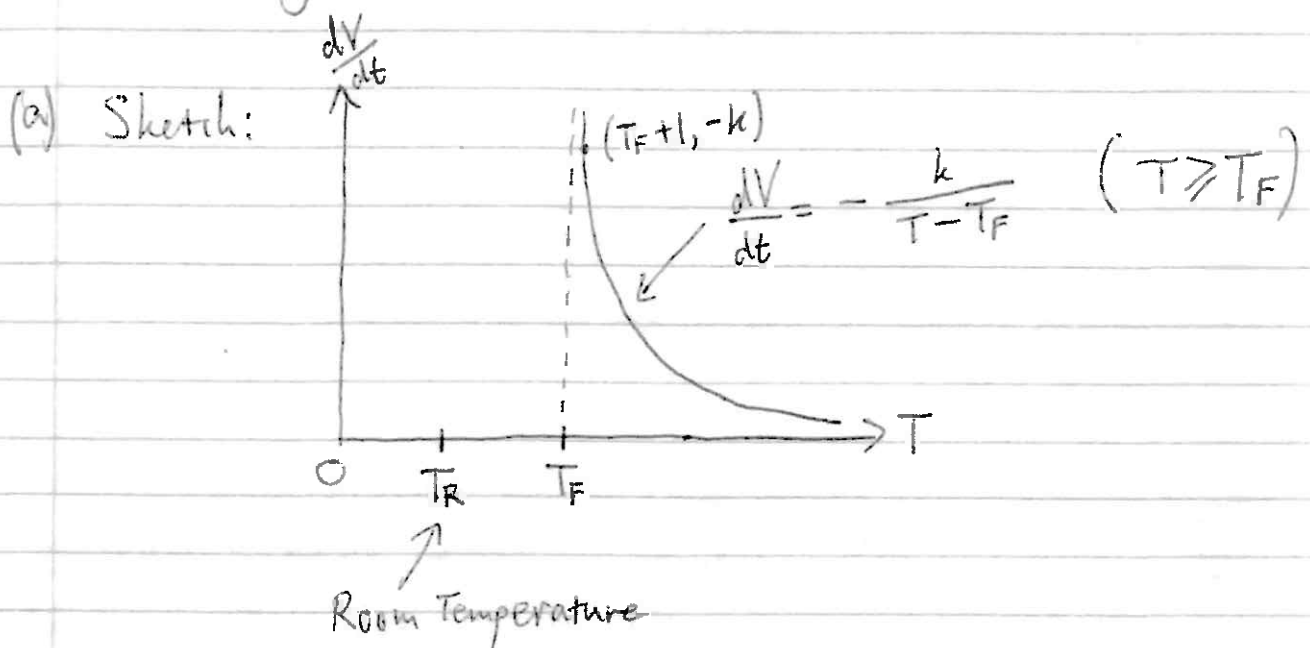 dV/dt
(a) Sketch:
(T_F+1, -k)
dV/dt = - k/(T-T_F) (T ⩾ T_F)
T
O T_R T_F
Room Temperature